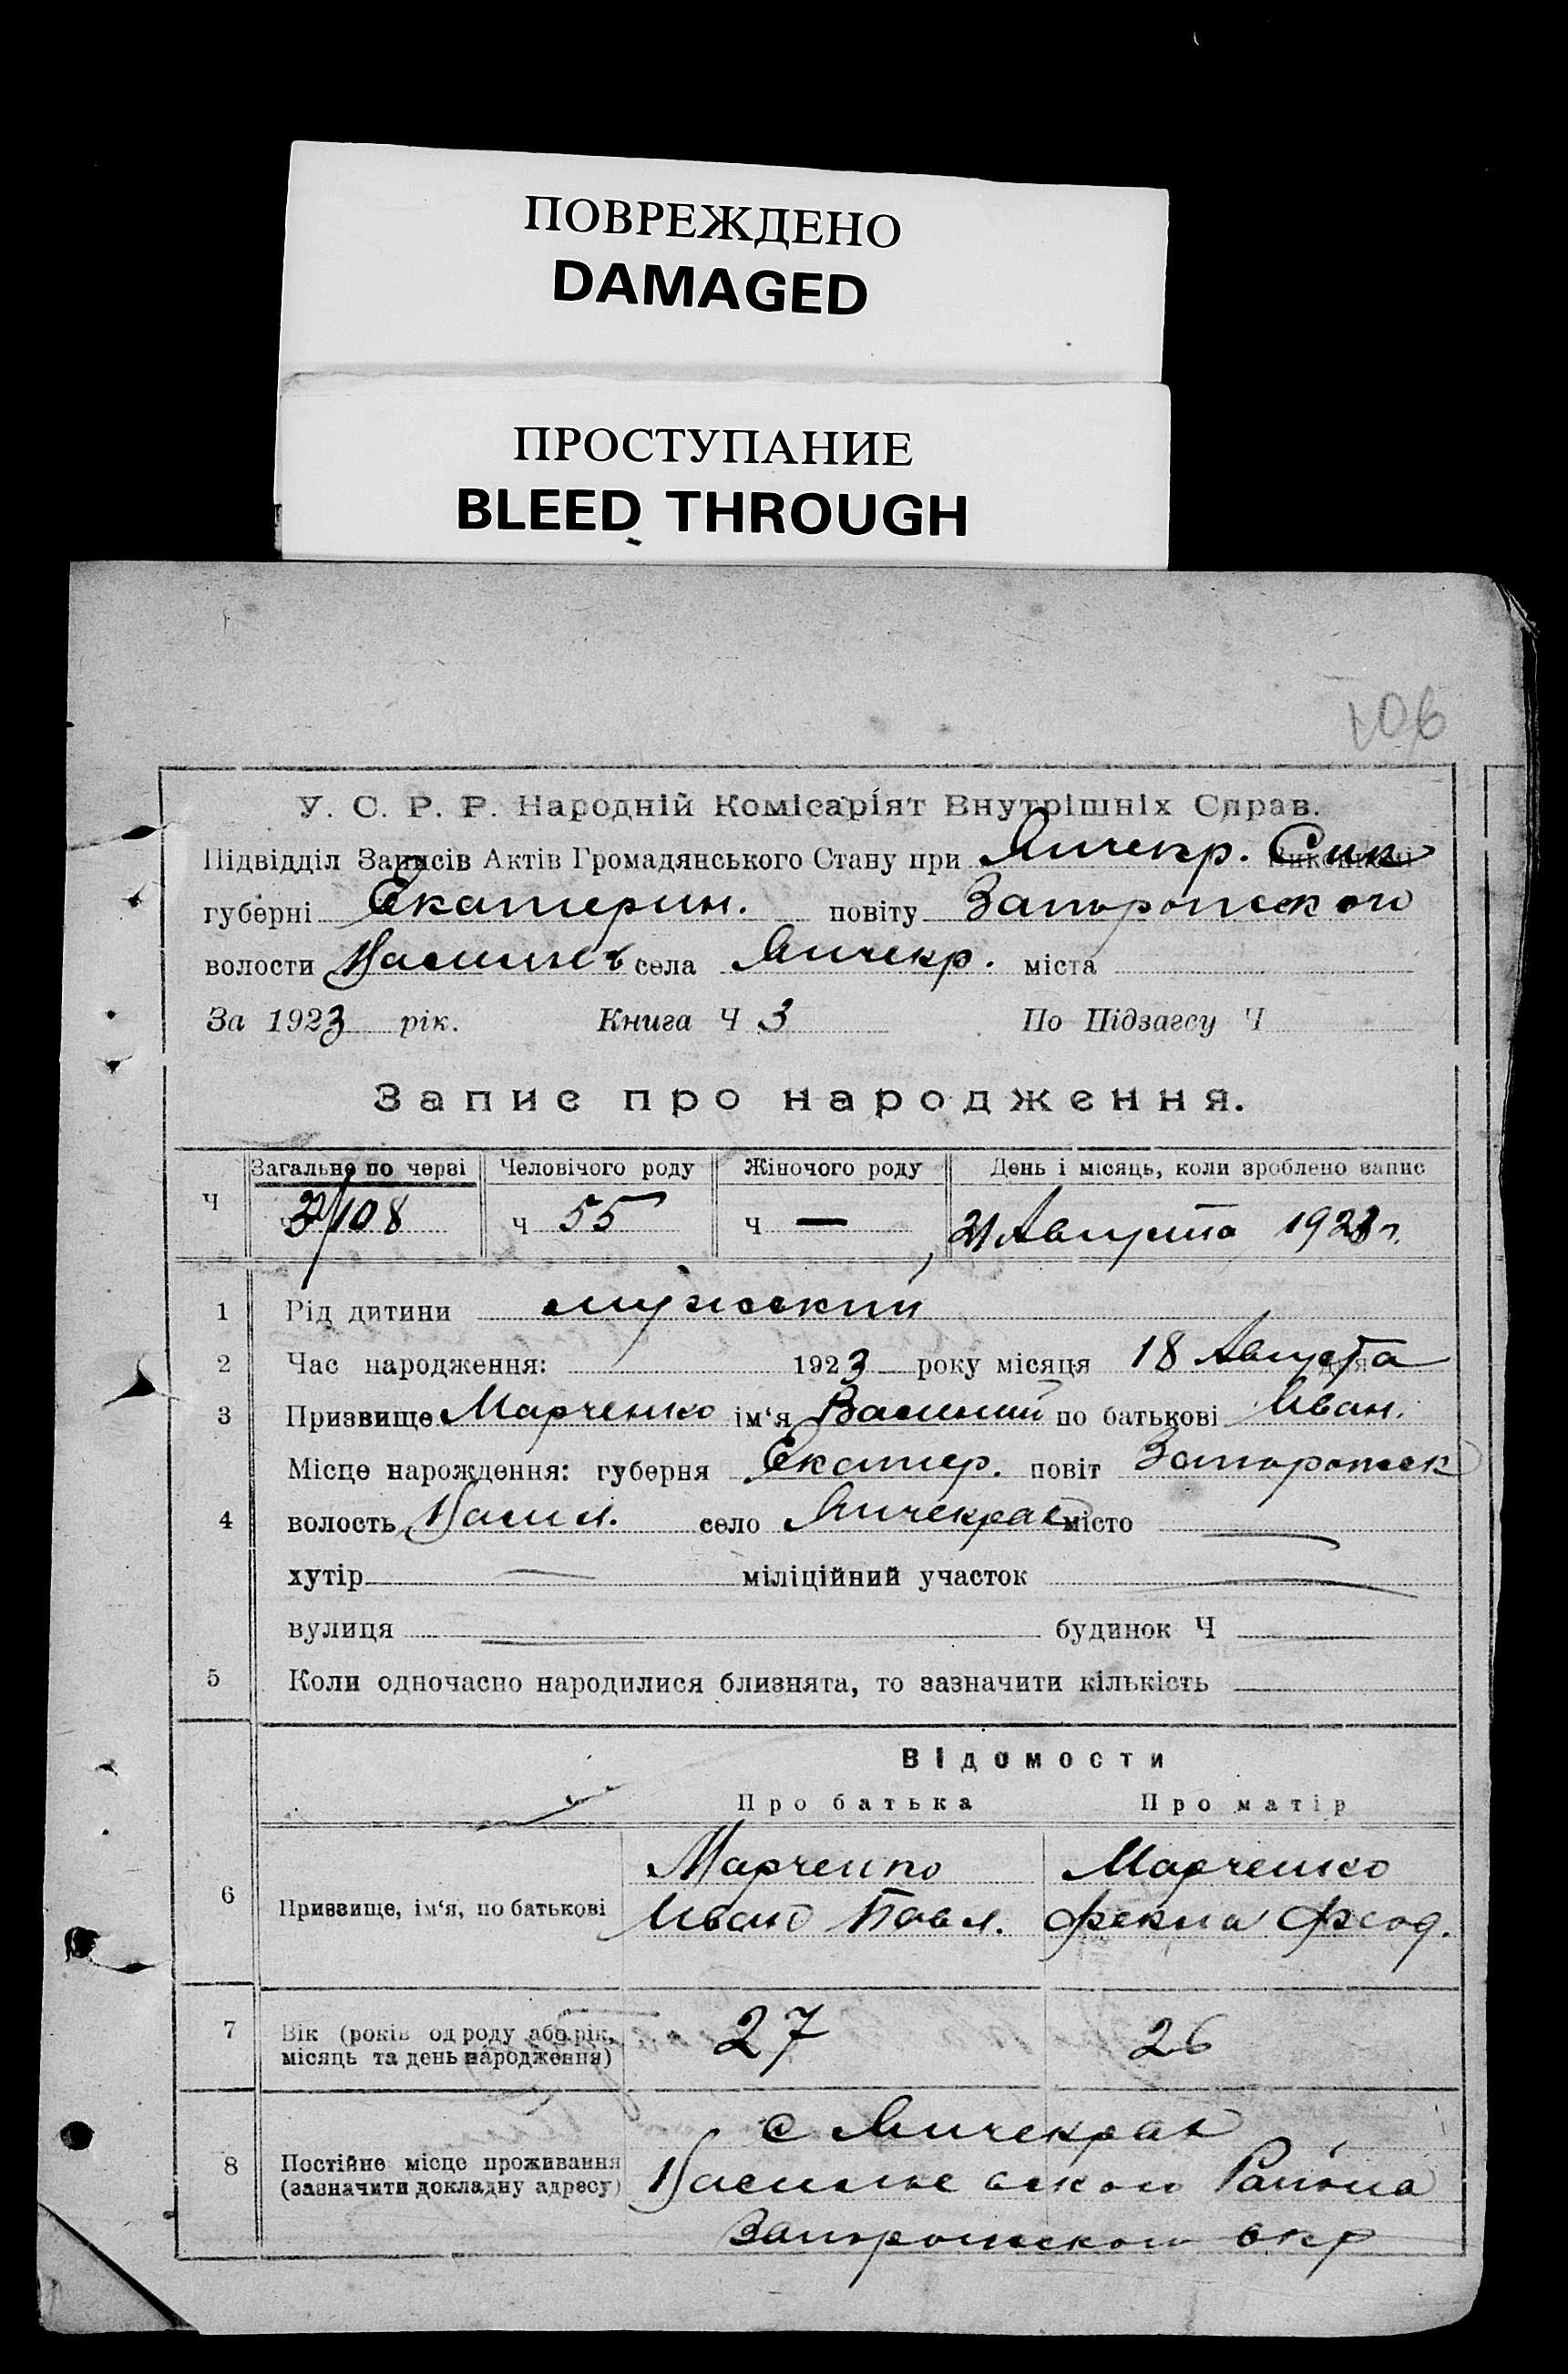 ПОВРЕЖДЕНО
DAMAGED
ПРОСТУПАНИЕ
BLEED THROUGH
106
У. С. Р. Р. Народній Комісаріят Внутрішніх Справ.
Підвідділ Записів Актів Громадянського Стану при Янчекр.
губерні Екатерин. повіту Запорожского
волости Васил села Янчекр. міста
За 1923 рік. Книга Ч 3 По Підзагсу Ч
Запис про народження.
Загальне по черві Человічого роду Жіночого роду День і місяць, коли зроблено запис
Ч 3/108 ч 55 ч — 21 Августа 1923 г.
1 Рід дитини мужский
2 Час народження: 1923 року місяця 18 Августа
3 Призвище Марченко ім‘я Василий по батькові Иван.
Місце нарождення: губерня Екатер. повіт Запорожск
4 волость Васил. село Янчекрак місто —
хутір — міліційний участок —
вулиця — будинок Ч
5 Коли одночасно народилися близнята, то зазначити кількість
Відомости
Про батька Про матір
Марченко Марченко
6 Призвище, ім‘я, по батькові Иван Павл. Фекла Феод.
7 Вік (років од роду або рік, 27 26
місяць та день народження)
с Янчекрак
8 Постійне місце проживання
(зазначити докладну адресу) Васильевского Района
Запорожского окр